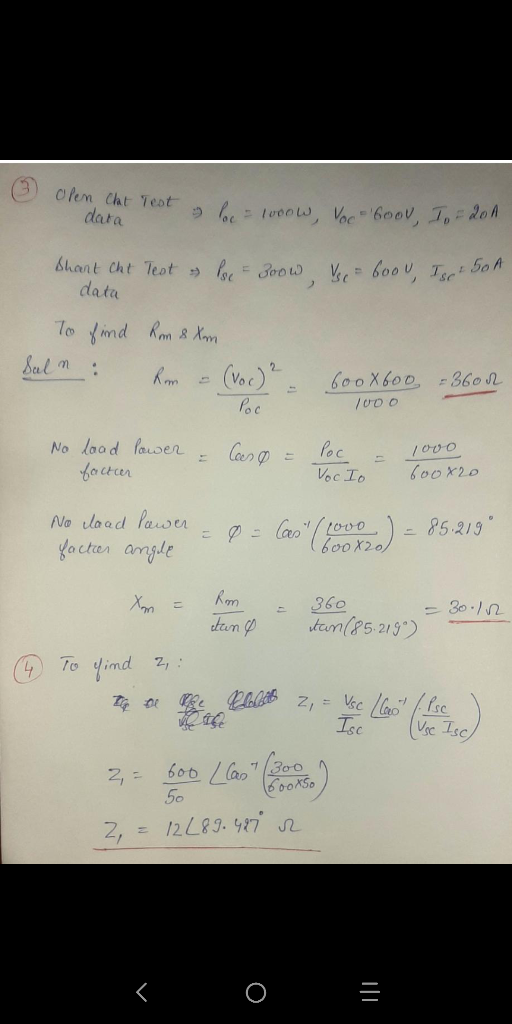 ③ Open Ckt Test ⇒ Poc = 1000W, Voc = 600V, I₀ = 20A
data
Short Ckt Test ⇒ Psc = 300W, Vsc = 600V, Isc = 50A
data
To find Rm & Xm
Soln :
Rm = (Voc)² / Poc = 600X600 / 1000 = 360Ω
No load Power factor = Cosφ = Poc / Voc I₀ = 1000 / 600X20
No load Power factor angle = φ = Cos⁻¹(1000 / 600X20) = 85.219°
Xm = Rm / tanφ = 360 / tan(85.219°) = 30.1Ω
④ To find Z₁ :
Z₁ = Vsc / Isc ∠Cos⁻¹(Psc / Vsc Isc)
Z₁ = 600 / 50 ∠Cos⁻¹(300 / 600X50)
Z₁ = 12∠89.427° Ω